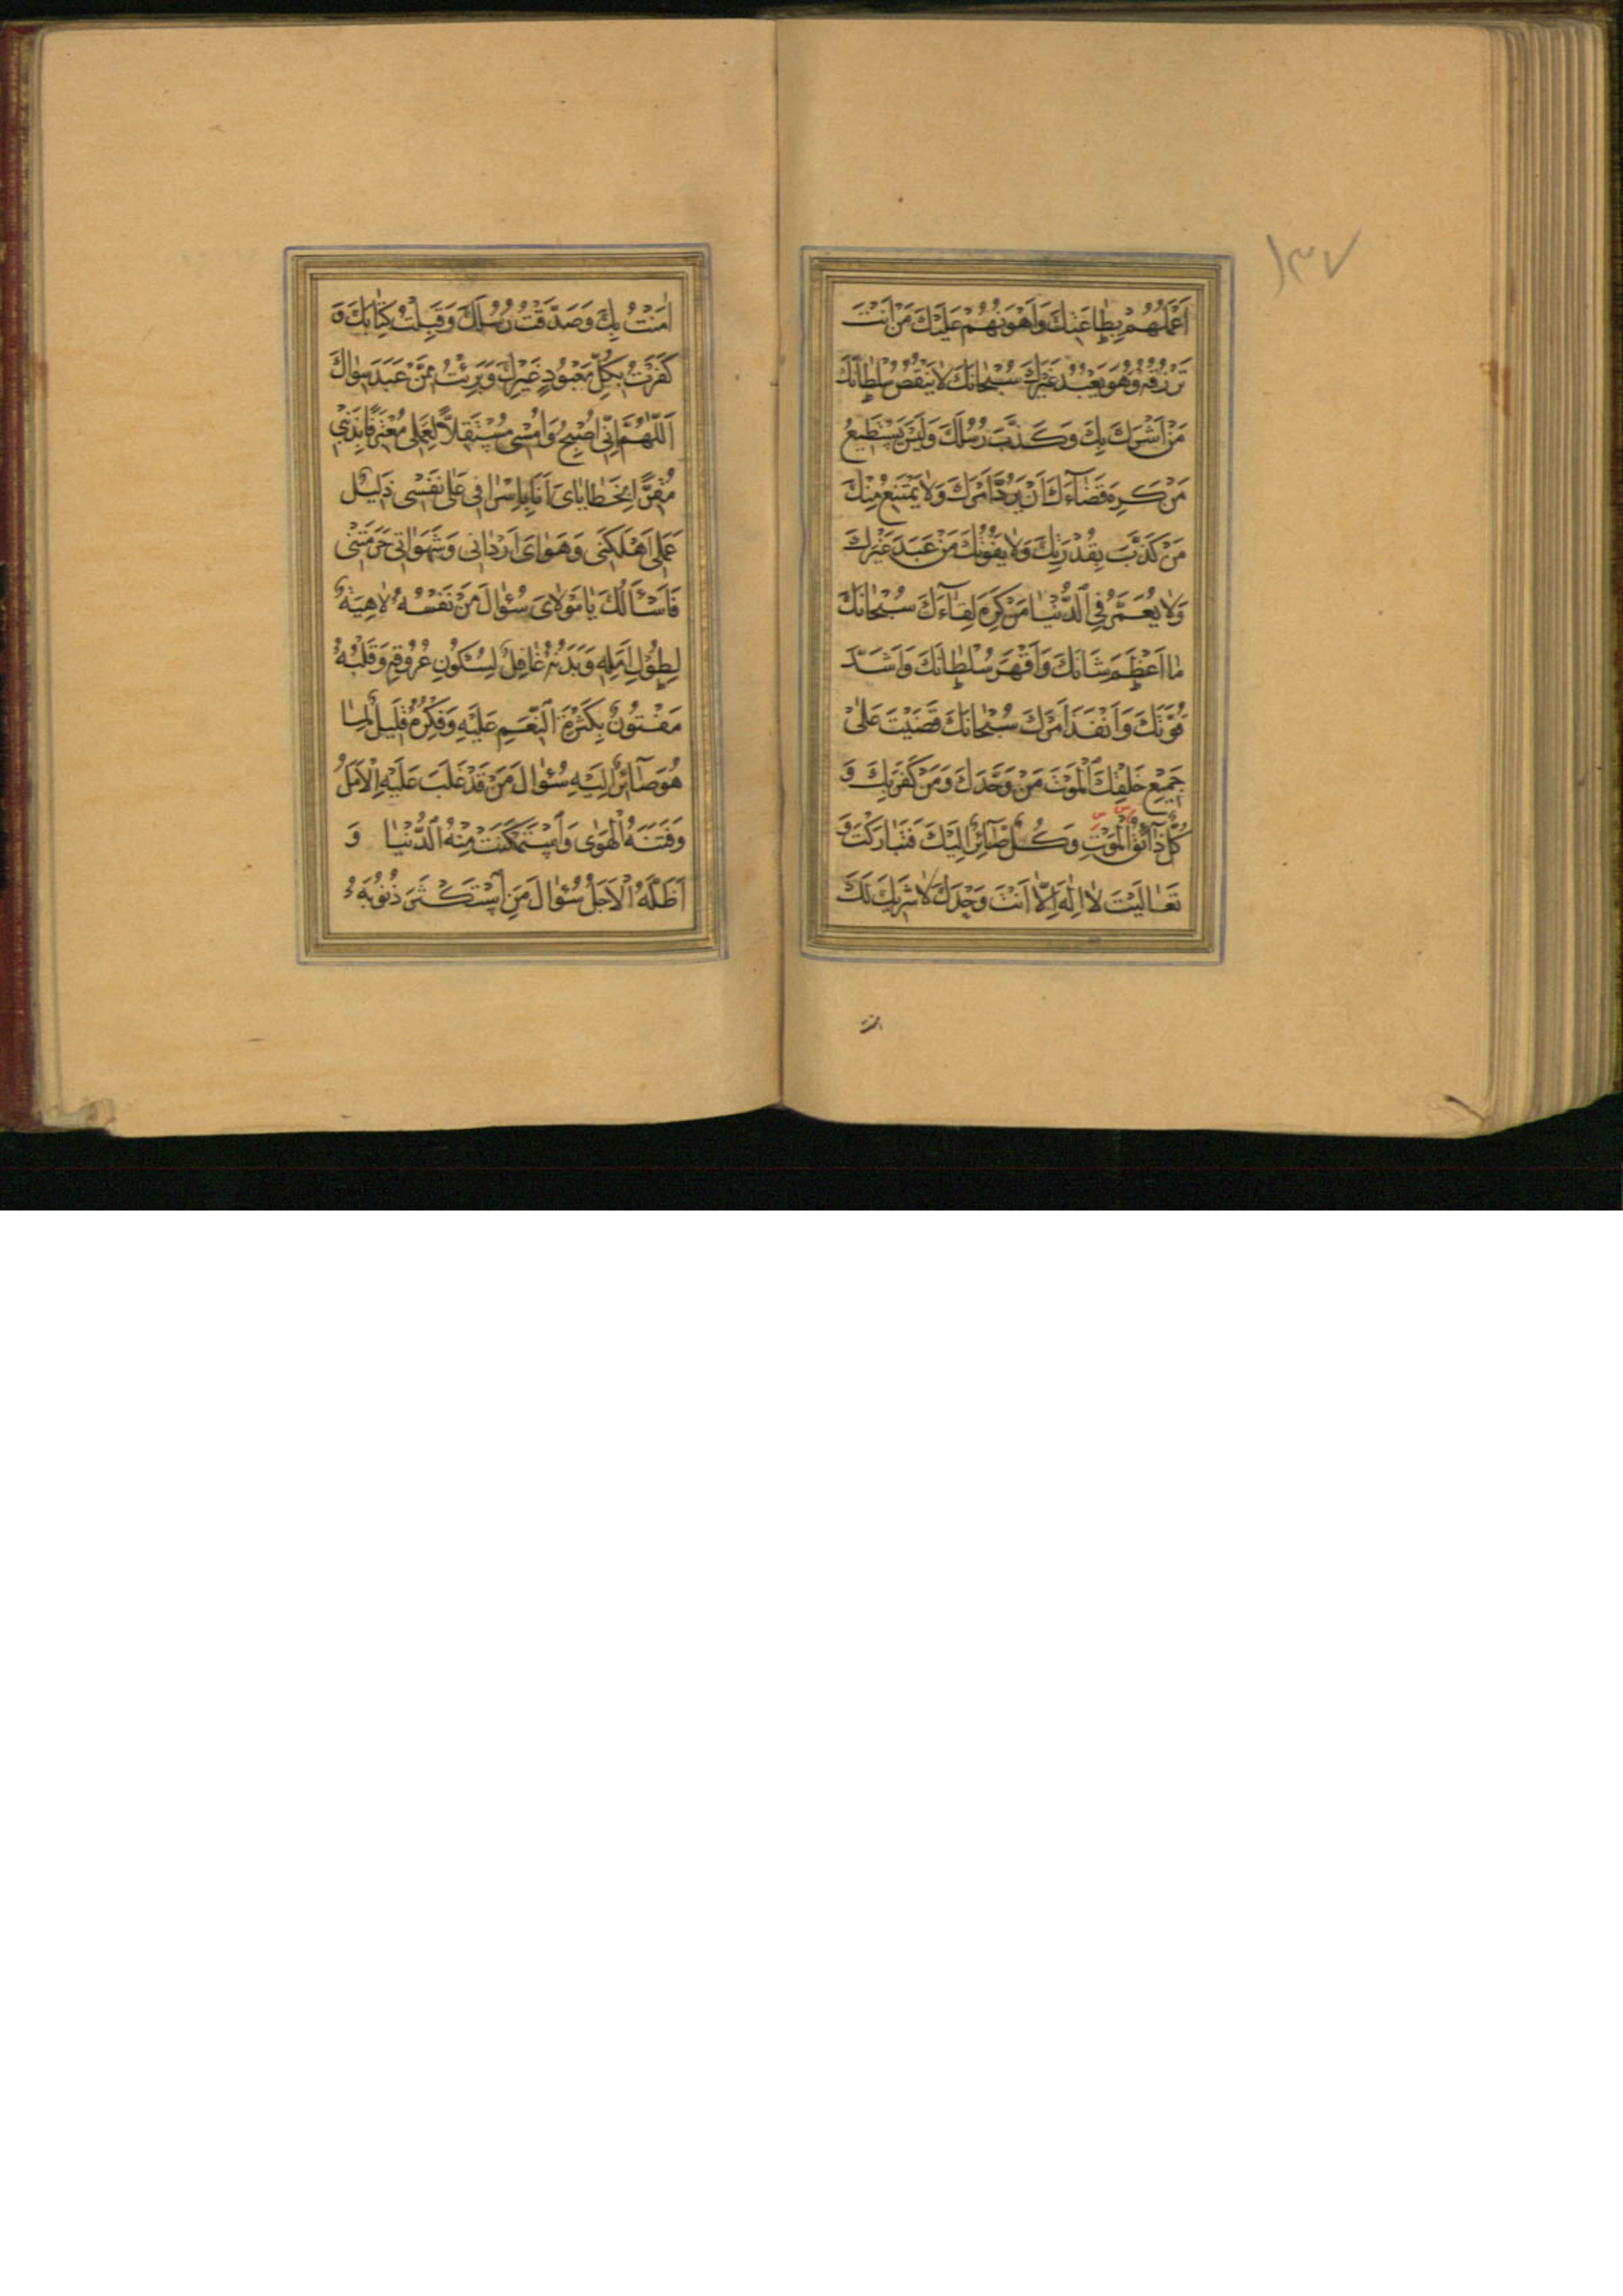 ١٣٧
اَعْمَلُهُمْ بِطٰاعَتِكَ وَاَهْوَنُهُمْ عَلَيْكَ مَنْ اَنْتَ
تَرْزُقُهُ وَهُوَ يَعْبُدُ غَيْرَكَ سُبْحٰانَكَ لٰا يَنْقُصُ سُلْطٰانَكَ
مَنْ اَشْرَكَ بِكَ وَكَذَّبَ رُسُلَكَ وَلَيْسَ يَسْتَطيعُ
مَنْ كَرِهَ قَضٰآءَكَ اَنْ يَرُدَّ اَمْرَكَ وَلٰا يَمْتَنِعُ مِنْكَ
مَنْ كَذَّبَ بِقُدْرَتِكَ وَلٰا يَفُوتُكَ مَنْ عَبَدَ غَيْرَكَ
وَلٰا يُعَمَّرُ فِي الدُّنْيٰا مَنْ كَرِهَ لِقٰآءَكَ سُبْحٰانَكَ
مٰا اَعْظَمَ شَانَكَ وَاَقْهَرَ سُلْطٰانَكَ وَاَشَدَّ
قُوَّتَكَ وَاَنْفَذَ اَمْرَكَ سُبْحٰانَكَ قَضَيْتَ عَلىٰ
جَميعِ خَلْقِكَ الْمَوْتَ مَنْ وَحَّدَكَ وَمَنْ كَفَرَ بِكَ وَ
كُلٌّ ذٰآئِقُ الْمَوْتِ وَكُلٌّ صٰآئِرٌ اِلَيْكَ فَتَبٰارَكْتَ وَ
تَعٰالَيْتَ لٰا اِلٰهَ اِلّٰا اَنْتَ وَحْدَكَ لٰا شَرِيكَ لَكَ
اٰمَنْتُ بِكَ وَصَدَّقْتُ رُسُلَكَ وَقَبِلْتُ كِتٰابَكَ وَ
كَفَرْتُ بِكُلِّ مَعْبُودٍ غَيْرِكَ وَبَرِئْتُ مِمَّنْ عَبَدَ سِوٰاكَ
اَللّٰهُمَّ اِنّي اُصْبِحُ وَاُمْسي مُسْتَقِلًّا لِعَمَلي مُعْتَرِفًا بِذَنْبي
مُقِرًّا بِخَطٰايٰايَ اَنَا بِاِسْرٰافي عَلىٰ نَفْسي ذَليلٌ
عَمَلي اَهْلَكَني وَهَوٰايَ اَرْدٰاني وَشَهَوٰاتي حَرَمَتْني
فَاَسْئَلُكَ يٰا مَوْلٰايَ سُؤٰالَ مَنْ نَفْسُهُ لٰاهِيَةٌ
لِطُولِ اَمَلِهِ وَبَدَنُهُ غٰافِلٌ لِسُكُونِ عُرُوقِهِ وَقَلْبُهُ
مَفْتُونٌ بِكَثْرَةِ النِّعَمِ عَلَيْهِ وَفِكْرُهُ قَليلٌ لِمٰا
هُوَ صٰآئِرٌ اِلَيْهِ سُؤٰالَ مَنْ قَدْ غَلَبَ عَلَيْهِ الْاَمَلُ
وَفَتَنَهُ الْهَوٰى وَاسْتَمْكَنَتْ مِنْهُ الدُّنْيٰا وَ
اَظَلَّهُ الْاَجَلُ سُؤٰالَ مَنِ اسْتَكْثَرَ ذُنُوبَهُ وَ